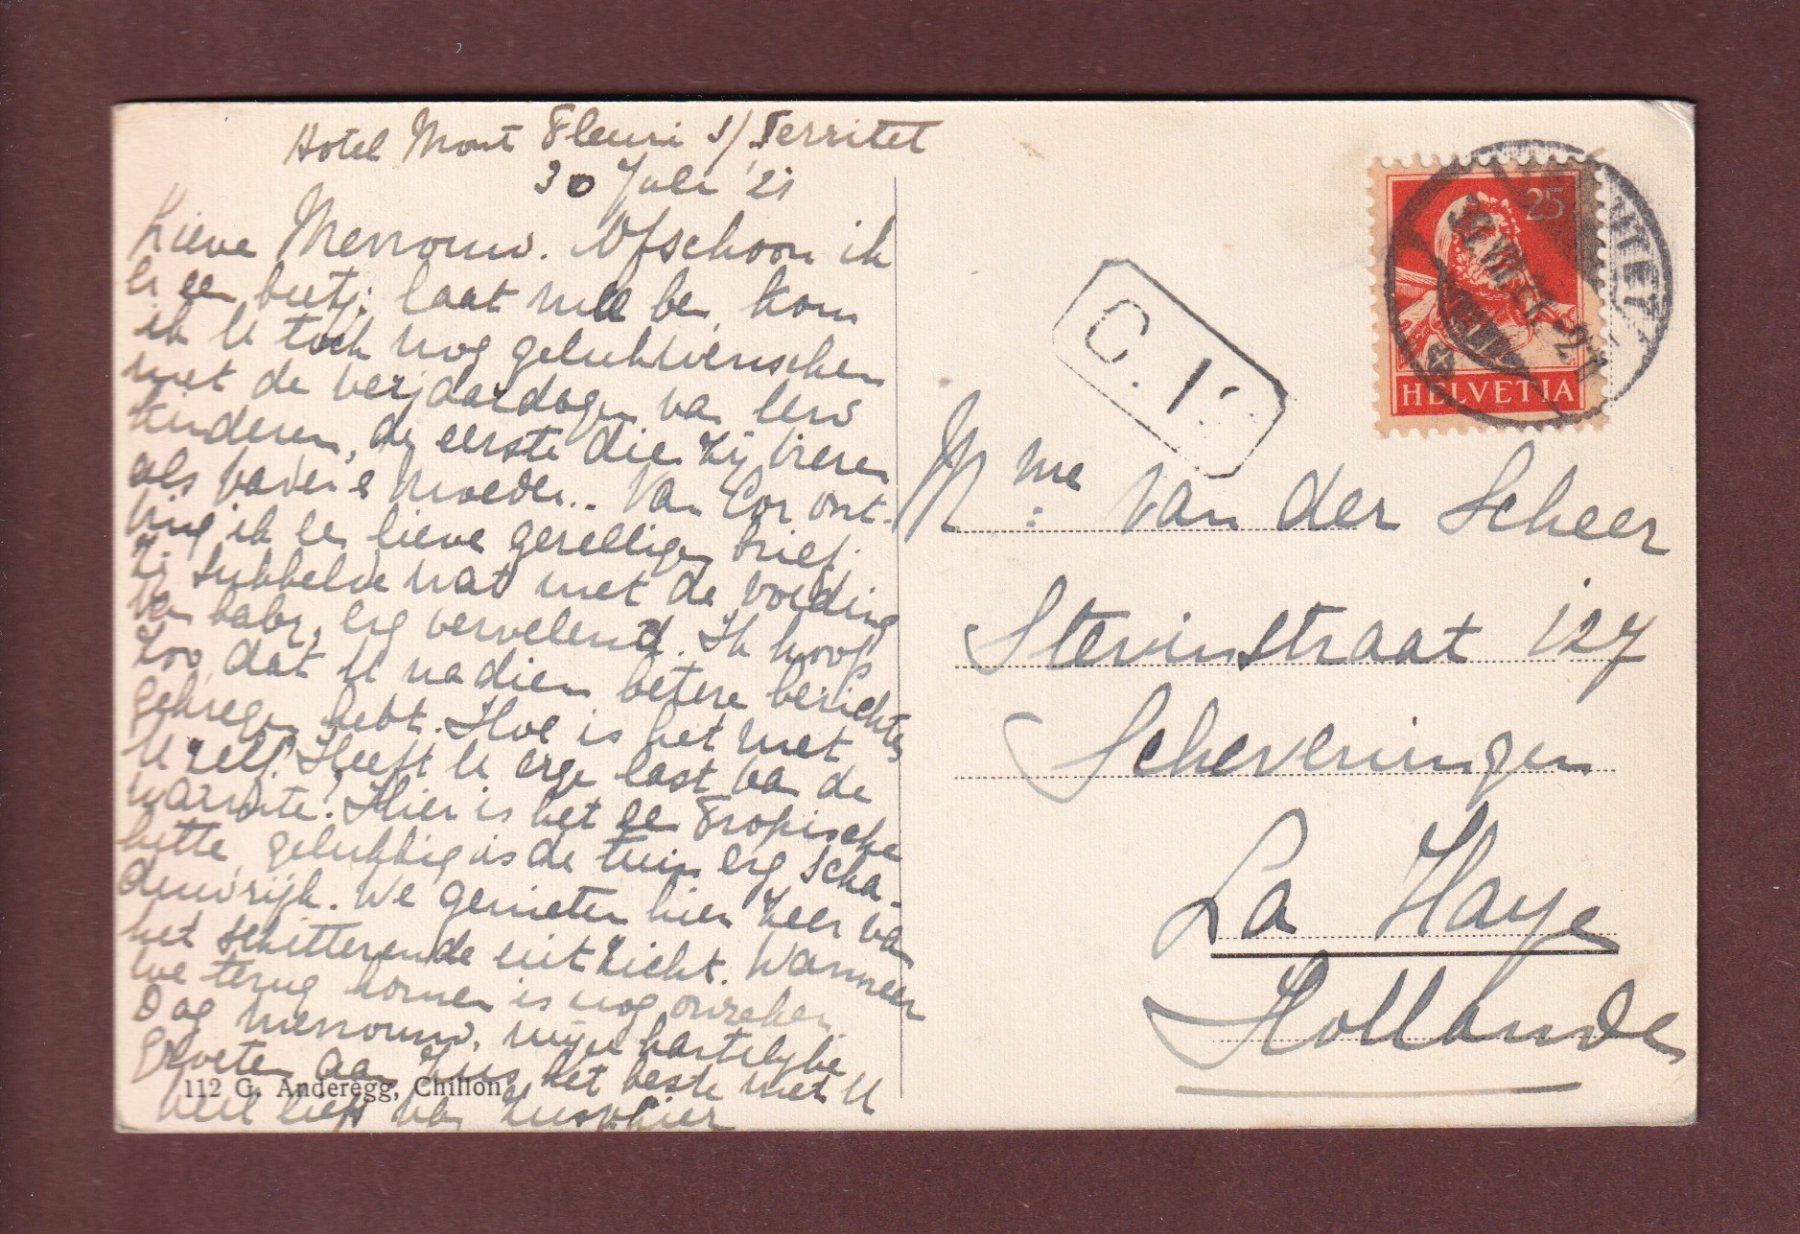 Hotel Mont Fleuri s/Territet
30 Juli '21
Lieve Mevrouw. Ofschoon ik
er een beetje laat mee ben, kom
ik U toch nog gelukwenschen
met de verjaardagen van Uw
kinderen, de eerste die zij vieren
als vader & moeder. Van Cor ont-
ving ik een lieve gezellige brief.
Zij sukkelde wat met de voeding
van baby, erg vervelend. Ik hoop
zoo, dat U nadien betere berichten
gekregen hebt. Hoe is het met
U zelf? Heeft U erge last van de
warmte? Hier is het een Tropische
hitte, gelukkig is de tuin erg scha-
duwrijk. We genieten hier zeer van
het schitterende uitzicht. Wanneer
we terug komen is nog onzeker.
Dag mevrouw, mijn hartelijke
groeten aan Zus, het beste met U
veel liefs van
112 G. Anderegg, Chillon
25
HELVETIA
C. 1
Mme van der Scheer
Stevinstraat 127
Scheveningen
La Haye
Hollande